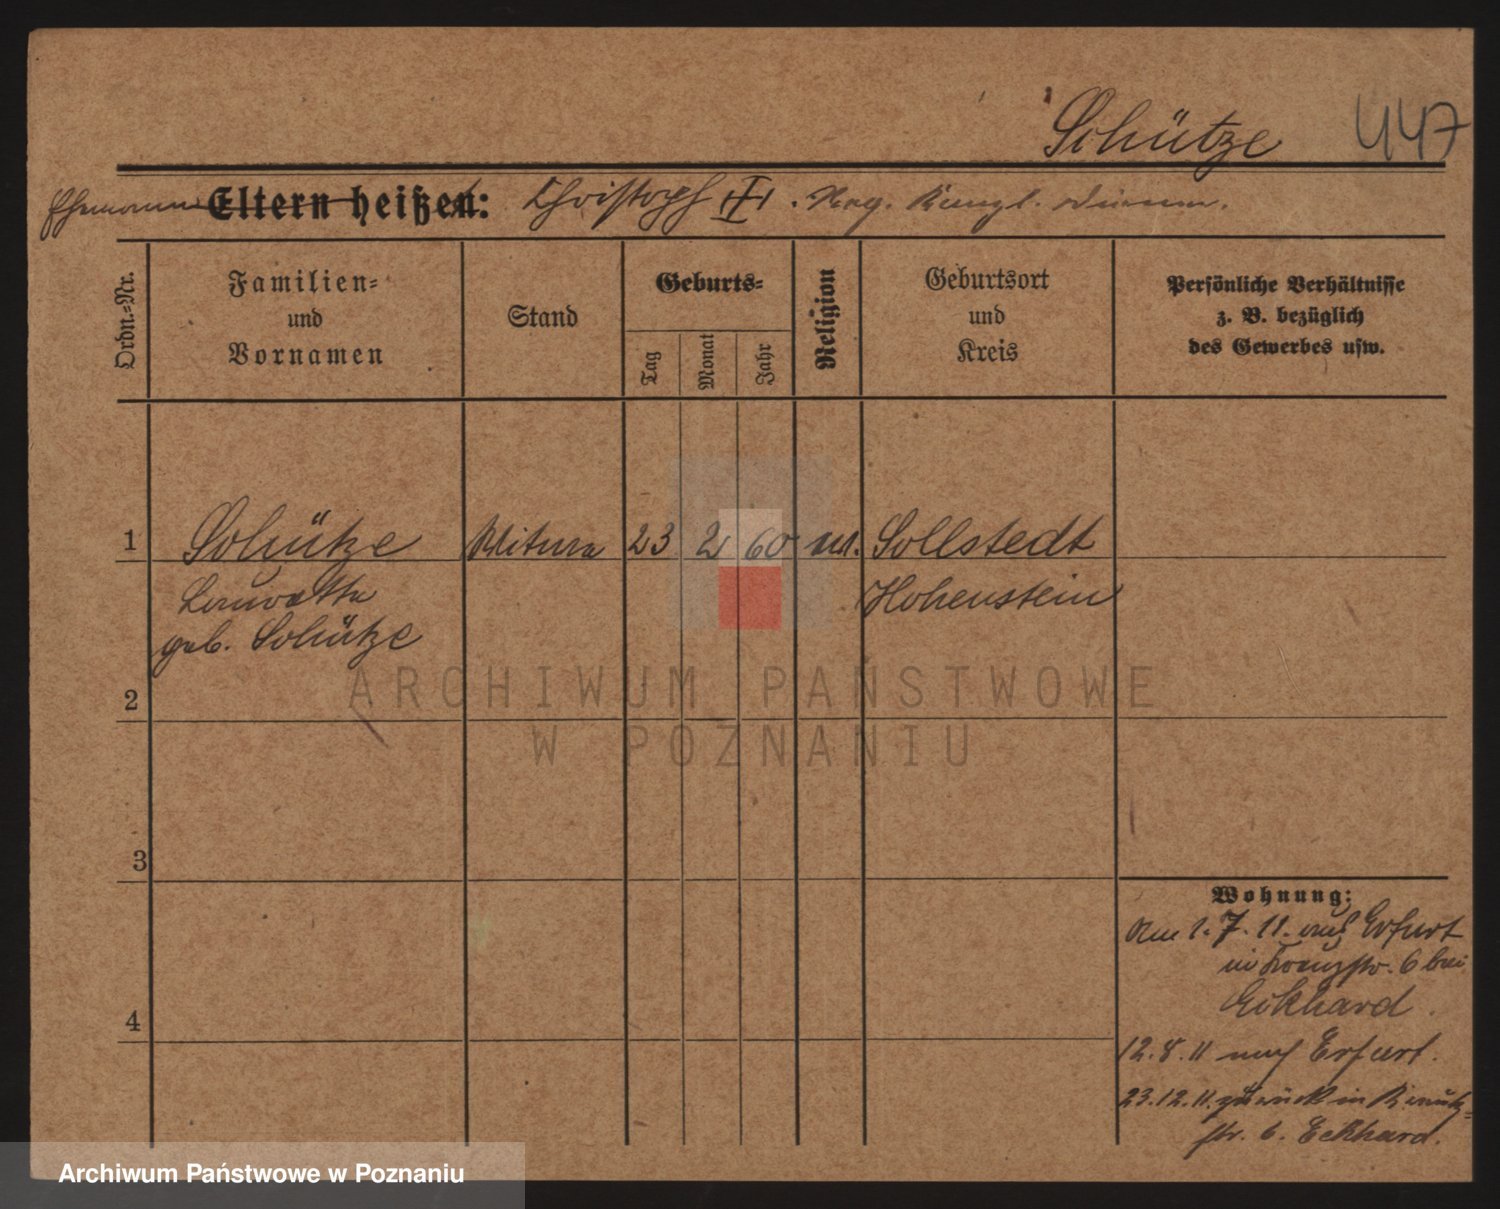 Schütze 447
Ehemann Eltern heißen: Christoph III. Reg.
Ordn.-Nr.
Familien-
und
Vornamen
Stand
Geburts-
Tag
Monat
Jahr
Religion
Geburtsort
und
Kreis
Persönliche Verhältnisse
z. B. bezüglich
des Gewerbes usw.
1 Schütze Witwe 23 2 60 Sollstedt
Hohenstein
geb. Schütze
2
ARCHIWUM PAŃSTWOWE
W POZNANIU
3
4
Wohnung:
Am 1. 7. 11. aus Erfurt
in Kreuzstr. 6 bei
Eckhard.
12. 8. 11 nach Erfurt.
23. 12. 11. zurück in Kreuz-
str. 6. Eckhard.
Archiwum Państwowe w Poznaniu